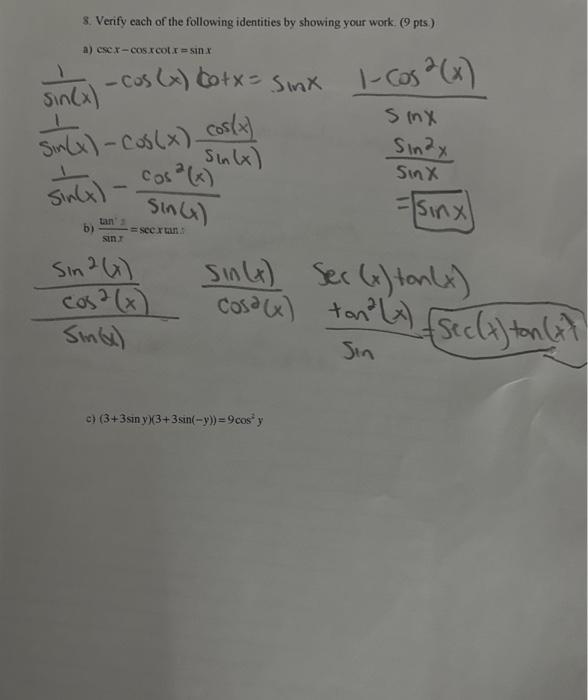 8. Verify each of the following identities by showing your work. (9 pts.)
a) csc x − cos x cot x = sin x
1/sin(x) − cos(x) cotx = sinx
1/sin(x) − cos(x) cos(x)/sin(x)
1/sin(x) − cos²(x)/sin(x)
1−cos²(x)/sinx
sin²x/sinx
= sinx
b) tan² x/sin x = sec x tan x
sin²(x)/cos²(x)/sin(x)
sin(x)/cos²(x)
sec(x)tan(x)
tan²(x)/sin = sec(x)tan(x)
c) (3+3sin y)(3+3sin(−y)) = 9cos² y